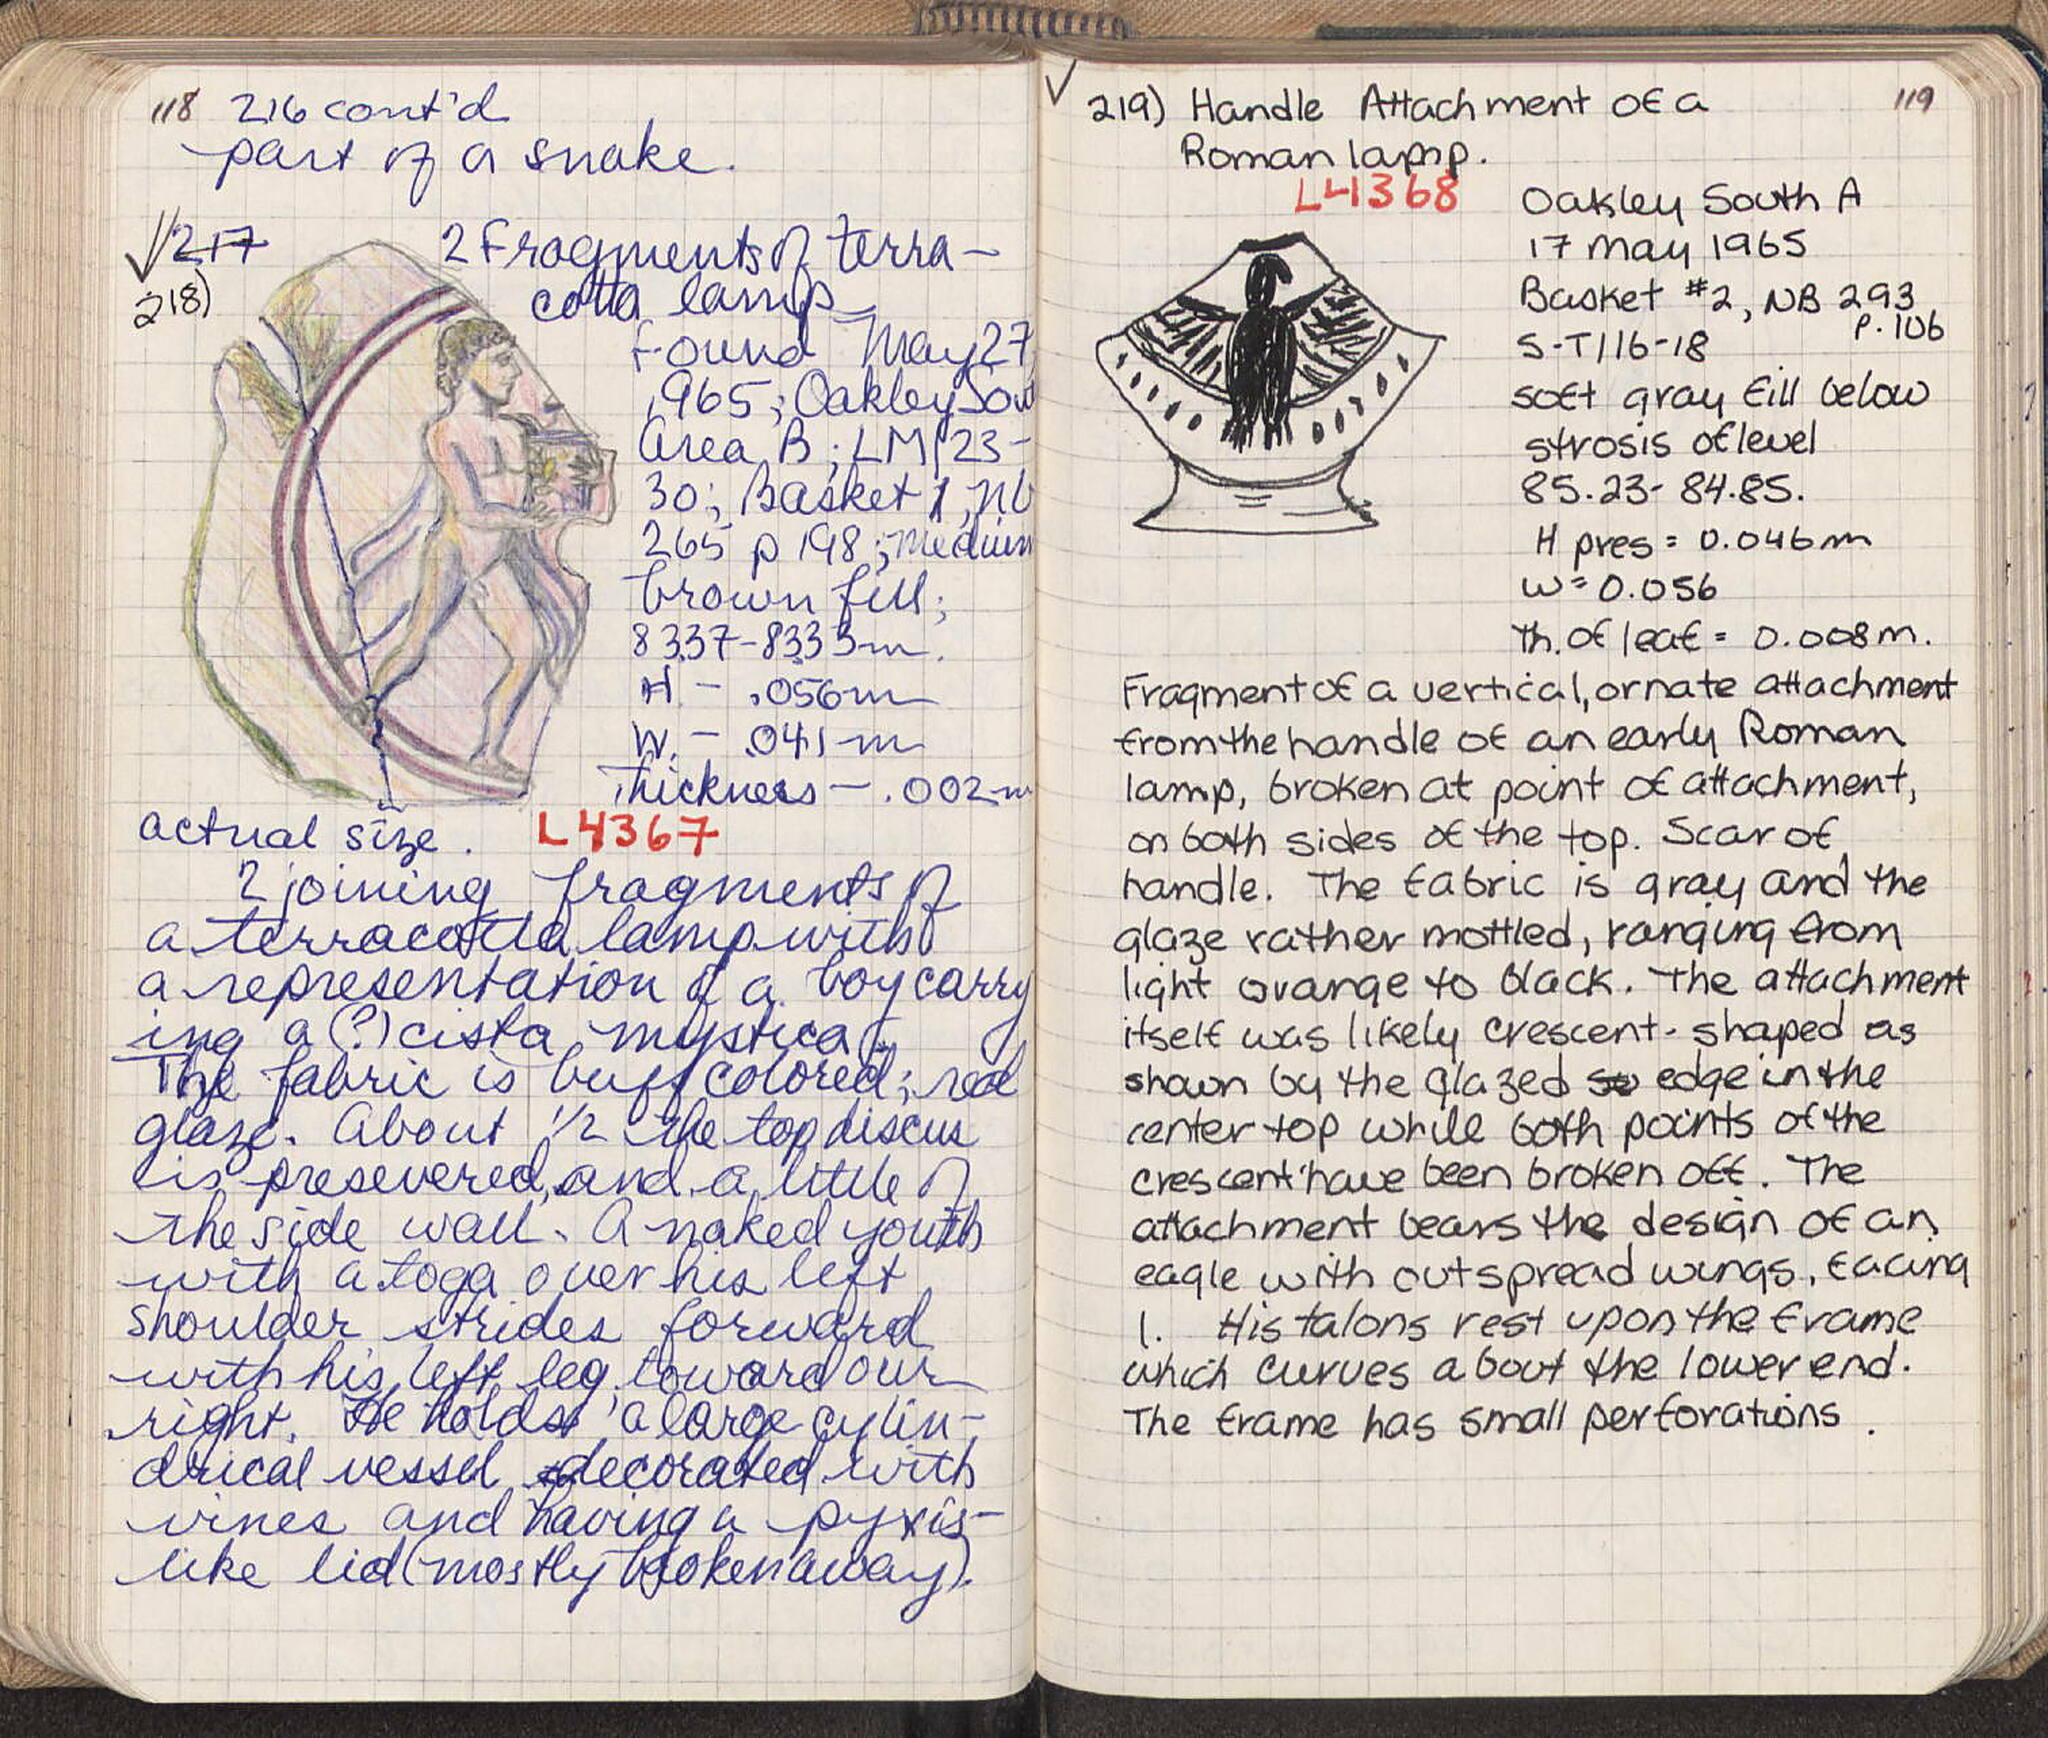 118 216 cont'd
part of a snake.
217
218)
2 Fragments of terra-
cotta lamp
Found May 27
1965; Oakley Sou
Area B; LM/23-
30; Basket 1, nb
265 p 198; medium
brown fill;
83.37-83.33m.
H - .056m
W. - .041m
Thickness - .002m
actual size. L4367
2 joining fragments of
a terracotta lamp with
a representation of a boy carry
ing a (?) cista mystica.
The fabric is buff colored; red
glaze. About 1/2 the top discus
is presevered, and a little of
the side wall. A naked youth
with a toga over his left
shoulder strides forward
with his left leg toward our
right. He holds a large cylin-
drical vessel decorated with
vines and having a pyxis-
like lid (mostly broken away).
119
219) Handle Attachment of a
Roman lamp.
L4368
Oakley South A
17 May 1965
Basket #2, NB 293
p. 106
S-T/16-18
soft gray fill below
strosis of level
85.23-84.85.
H pres = 0.046m
W = 0.056
Th. of leaf = 0.008m.
Fragment of a vertical, ornate attachment
from the handle of an early Roman
lamp, broken at point of attachment,
on both sides of the top. Scar of
handle. The fabric is gray and the
glaze rather mottled, ranging from
light orange to black. The attachment
itself was likely crescent-shaped as
shown by the glazed edge in the
center top while both points of the
crescent have been broken off. The
attachment bears the design of an
eagle with outspread wings, facing
l. His talons rest upon the frame
which curves about the lower end.
The frame has small perforations.